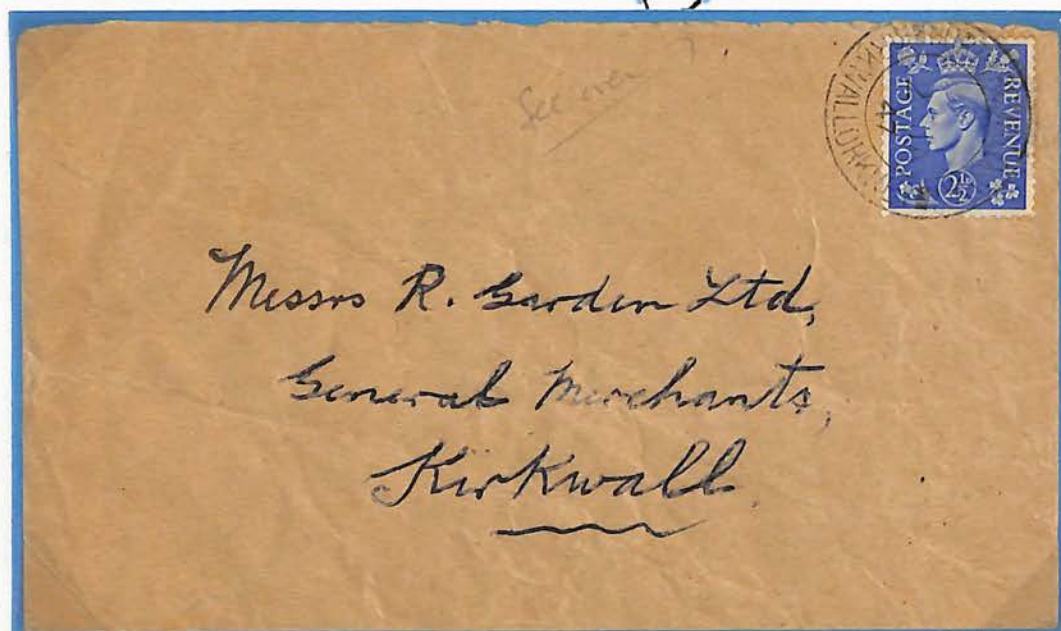 See over
POSTAGE
REVENUE
2½D
Messrs R. Garden Ltd,
General Merchants,
Kirkwall.